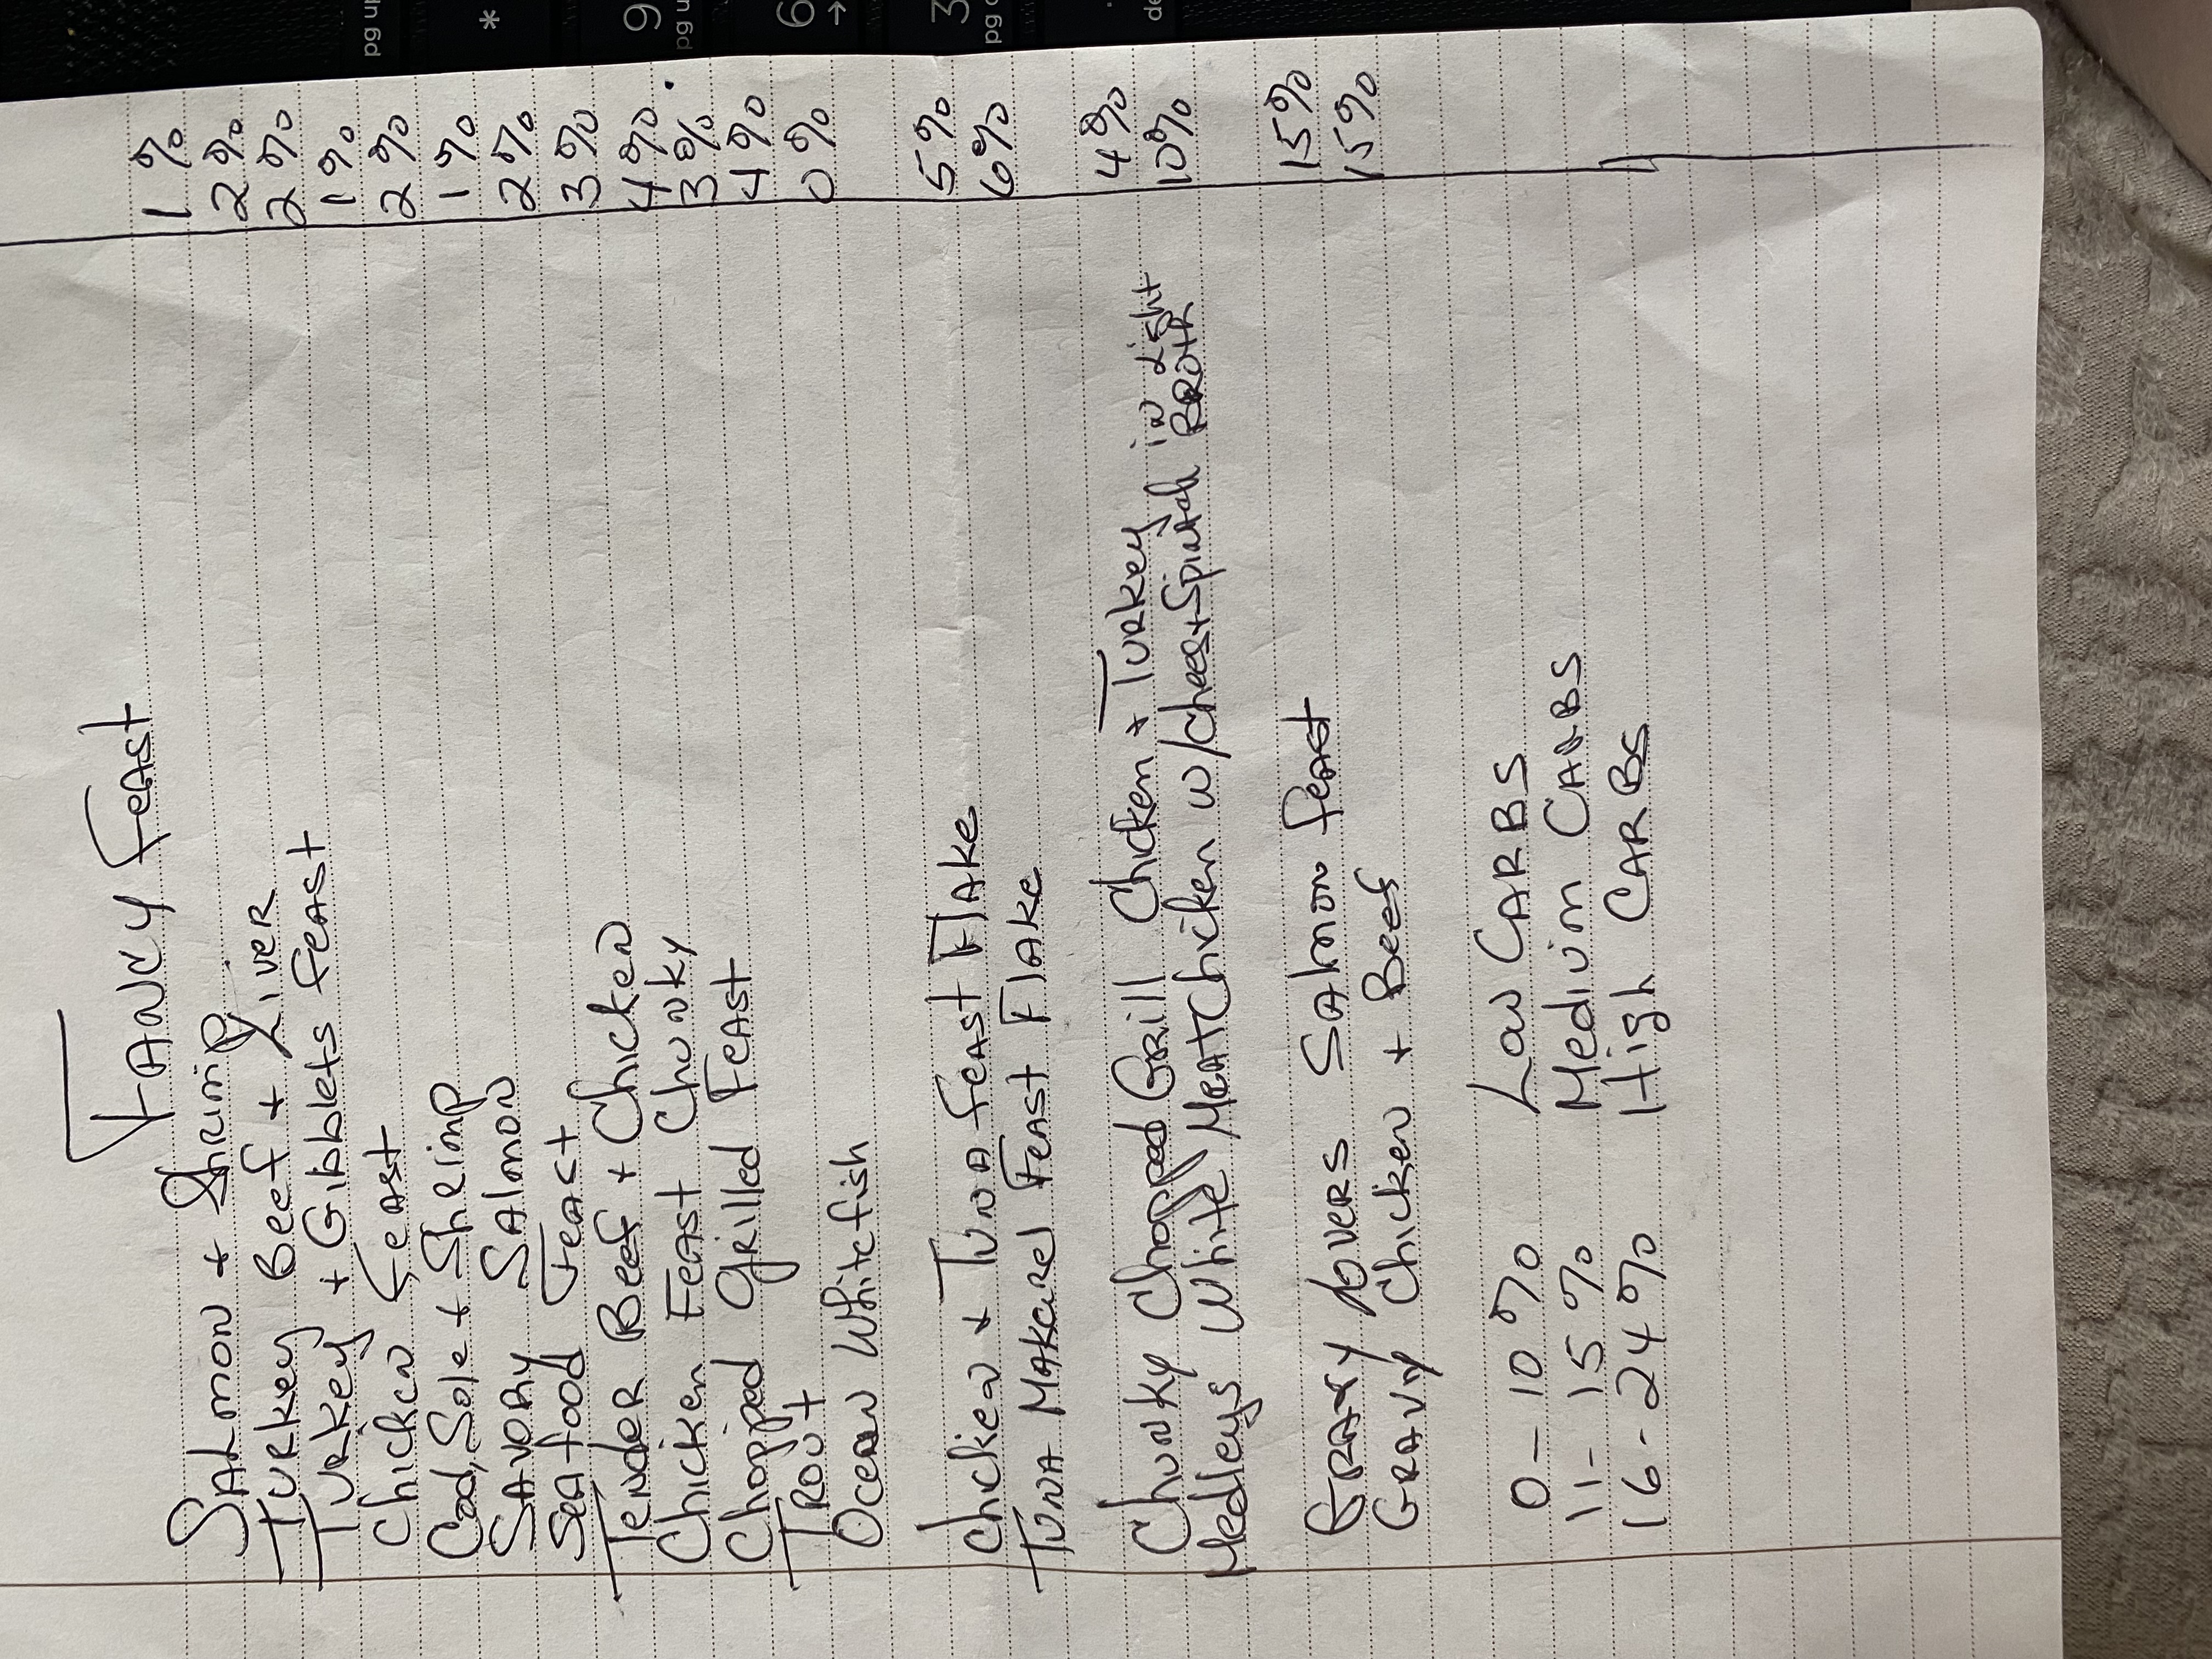 FANCY FEAST
SALMON + Shrimp 1%
TURKEY Beef + LIVER 2%
TURKEY + Gibblets FEAST 2%
Chicken FEAST 1%
Cod, Sole + Shrimp 2%
SAVORY SALMON 1%
Seafood FEAST 2%
TENDER Beef + Chicken 3%
Chicken FEAST Chunky 4%.
Chopped Grilled FEAST 3%
TROUT 4%
Ocean Whitefish 0%
Chicken + TUNA FEAST FLAKE 5%
TUNA MAKarel FEAST FLAKE 6%
Chunky Chopped GRILL Chicken + TURKEY 4%
Medleys White MEAT Chicken w/chees+Spinach in Light BROTH 10%
GRAVY LOVERS SALMON FEAST 15%
GRAVY Chicken + Beef 15%
0-10% Low CARBS
11-15% Medium CARBS
16-24% High CARBS
pg up
*
9
pg u
6
→
3
pg d
.
de